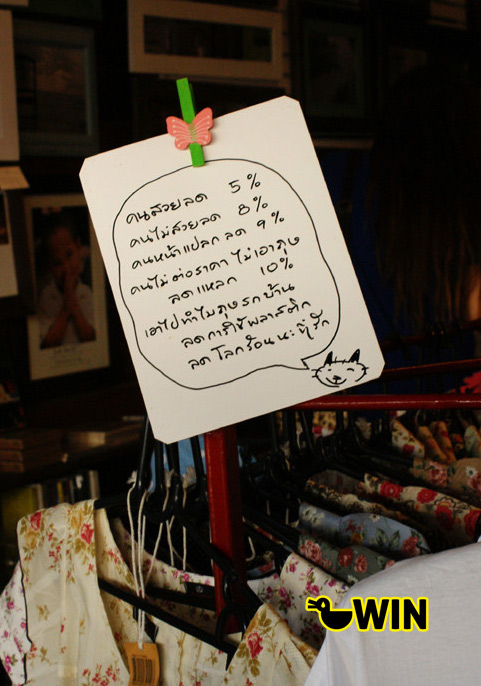 คนสวยลด 5%
คนไม่สวยลด 8%
คนหน้าแปลก ลด 9%
คนไม่ต่อราคา ไม่เอาถุง
ลดแหลก 10%
เอาไปทำไมถุงรกบ้าน
ลดการใช้พลาสติก
ลดโลกร้อนนะที่รัก
WIN